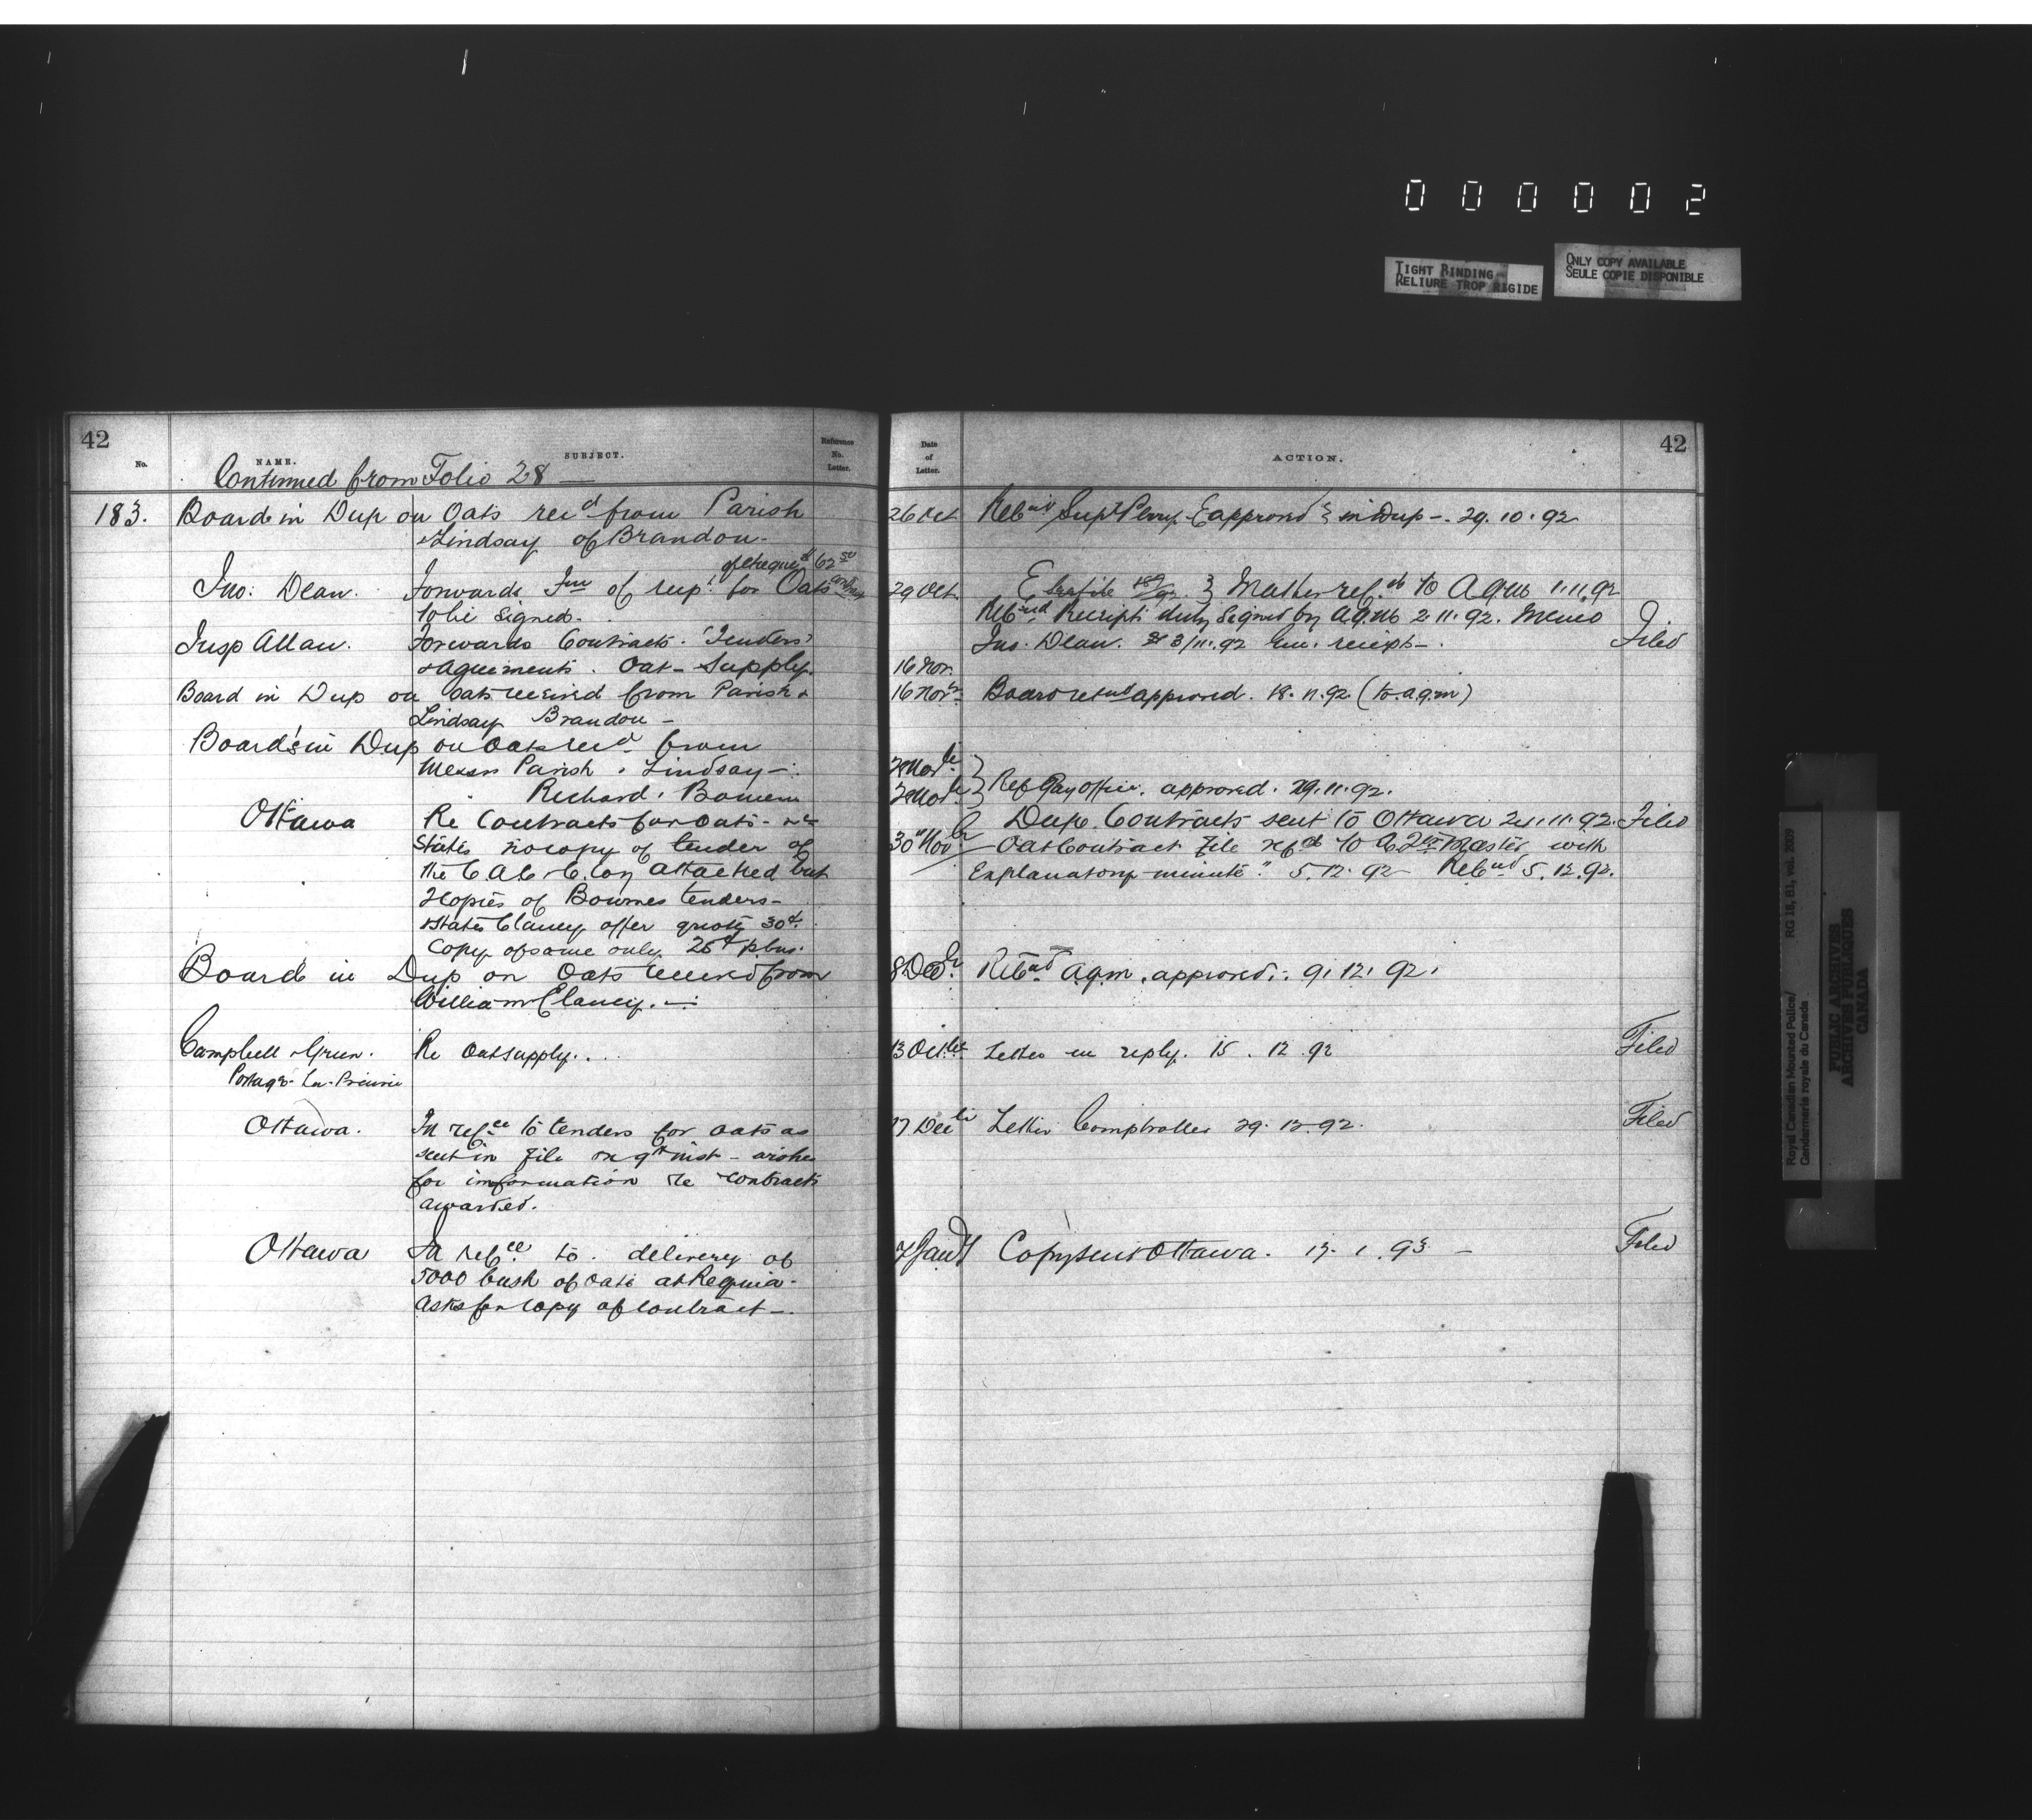 0 0 0 0 0 2
TIGHT BINDING
RELIURE TROP RIGIDE
ONLY COPY AVAILABLE
SEULE COPIE DISPONIBLE
42
No.
NAME.
SUBJECT.
Reference No. Letter.
Continued from Folio 28 —
183. Board in Dup on Oats rec'd from Parish
& Lindsay of Brandon.
of cheque 62 50
Jno: Dean. Forwards of for Oats
to be signed.
Insp Allan. Forwards Contracts. Tenders
& agreements. Oat Supply.
Board in Dup on oats received from Parish &
Lindsay Brandon —
Board's in Dup on Oats rec'd from
Messrs Parish & Lindsay —
Richard Bourne
Ottawa Re Contracts for Oats - &c
States no copy of tender of
the attached but
2 copies of Bournes tenders —
& States Clancy offer quote 30¢.
Copy of same only 25¢ p bus.
Board in Dup on Oats received from
William Clancy. —
Campbell & Green. Re Oat supply.
Portage-La-Prairie
Ottawa. In refce to tenders for oats as
sent in file on 9th inst — wishes
for information re contracts
awarded.
Ottawa In refce to delivery of
5000 bush of oats at Regina -
asks for copy of contract —
42
Date of Letter.
ACTION.
26 Oct Retd Supt Perry approved in Dup — 29. 10. 92
29 Oct. Mather refd to AQM 1.11.92
Retnd Receipt duly signed by AQM 2.11.92. Memo
Jno. Dean. 3/11.92 receipt — Filed
16 Nov.
16 Novr Board retnd approved. 18.11.92 (to AQM)
28 Novbr
28 Novbr Ref Pay office. approved. 29.11.92.
Dup. Contracts sent to Ottawa 24.11.92. Filed
30" Novbr Oat Contract File refd to Qr Master with
Explanatory minute" 5.12.92 Retnd 5.12.92.
8 Decbr Retnd AQM. approved. 9.12.92.
13 Letter in reply. 15. 12. 92 Filed
17 Dec Letter Comptroller 29.12.92. Filed
7 Jany Copy sent Ottawa. 13. 1. 93 — Filed
Royal Canadian Mounted Police/
Gendarmerie royale du Canada
RG 18, B1, vol. 2009
PUBLIC ARCHIVES
ARCHIVES PUBLIQUES
CANADA